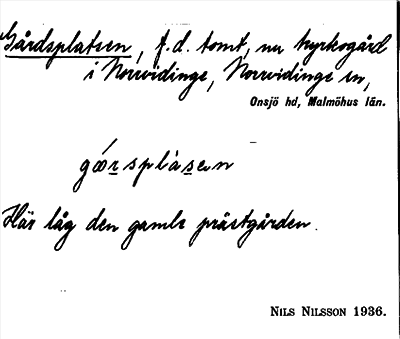 Gårdsplatsen, f.d. tomt, nu kyrkogård
i Norrvidinge, Norrvidinge sn,
Onsjö hd, Malmöhus län.
gó̄rsplàsen
Här låg den gamla prästgården.
NILS NILSSON 1936.